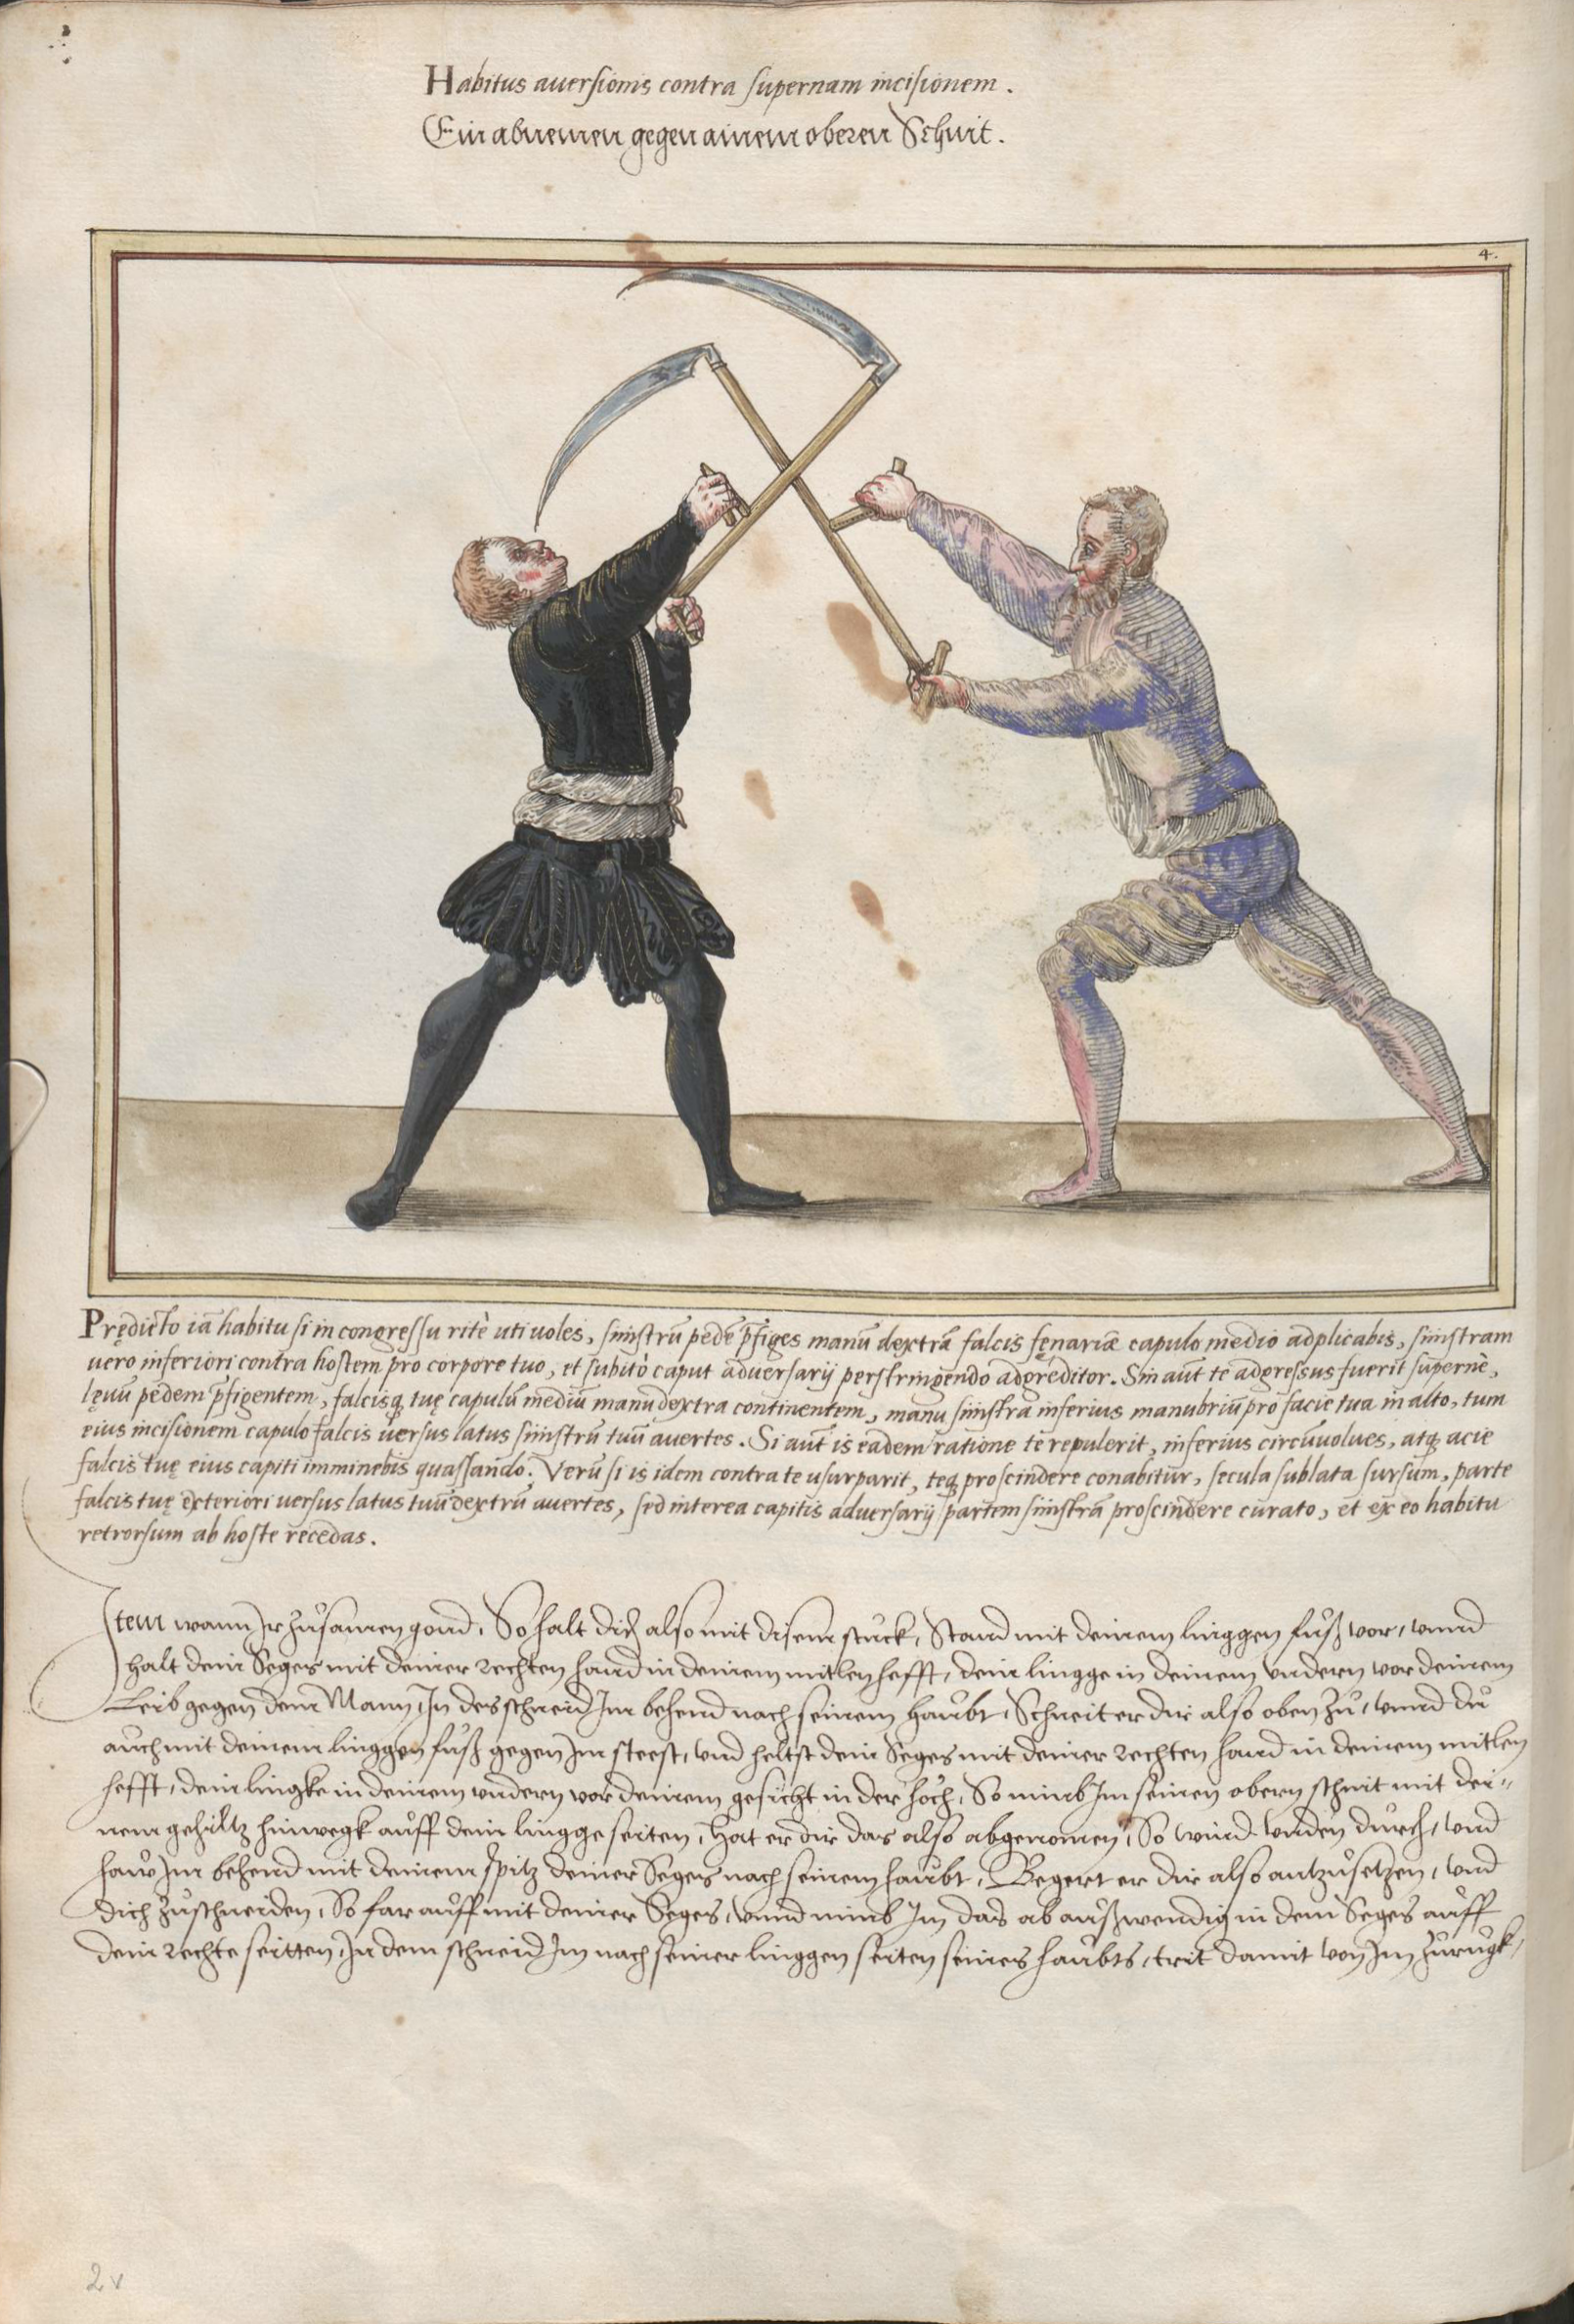 Habitus auersionis contra supernam incisionem.
Ein abnemen gegen ainem oberen Schnit.
4.
Prędicto iā habitu si in congressu ritè uti uoles, sinistrū pedē p̄figes manū dextrā falcis fęnariæ capulo medio adplicabis, sinistram
uero inferiori contra hostem pro corpore tuo, et subitò caput aduersarij perstringendo adgreditor. Sin aūt te adgressus fuerit supernè,
lęuū pedem p̄figentem, falcisq; tuę capulū mediū manu dextra continentem, manu sinistra inferius manubriū pro facie tua in alto, tum
eius incisionem capulo falcis uersus latus sinistrū tuū auertes. Si aūt is eadem ratione te repulerit, inferius circūuolues, atq; acie
falcis tuę eius capiti imminebis quassando. Verū si is idem contra te usurparit, teq; proscindere conabitur, secula sublata sursum, parte
falcis tuę exteriori uersus latus tuū dextrū auertes, sed interea capitis aduersarij partem sinistrā proscindere curato, et ex eo habitu
retrorsum ab hoste recedas.
Item wann Ir zůsamen gond, So halt dich also mit disem stuck, Stand mit deinem linggen fůß vor, vnnd
halt dein Seges mit deiner rechten hand in deinem mitlen hefft, dein lingge in deinem vndern vor deinem
Leib gegen dem Mann, In des schneid Im behend nach seinem haubt, Schneit er dir also oben zů, vnnd du
auch mit deinem linggen fůß gegen Im steest, vnd heltst dein Seges mit deiner rechten hand in deinem mitlen
hefft, dein lingke in deinem vndern vor deinem gesicht in der höch, So nimb Im seinen obern schnit mit dei-
nem gehiltz hinwegk auff dein lingge seiten, Hat er dir das also abgenomen, So wind vnden durch, vnd
haw Im behend mit deinem spitz deiner Seges nach seinem haubt, Begert er dir also antzůsetzen, vnd
dich zůschneiden, So far auff mit deiner Seges, vnnd nimb Im das ab außwendig in dein Seges auff
dein rechte seitten, In dem schneid Im nach seiner linggen seiten seines haubts, trit damit von Im zůrugk,
2v